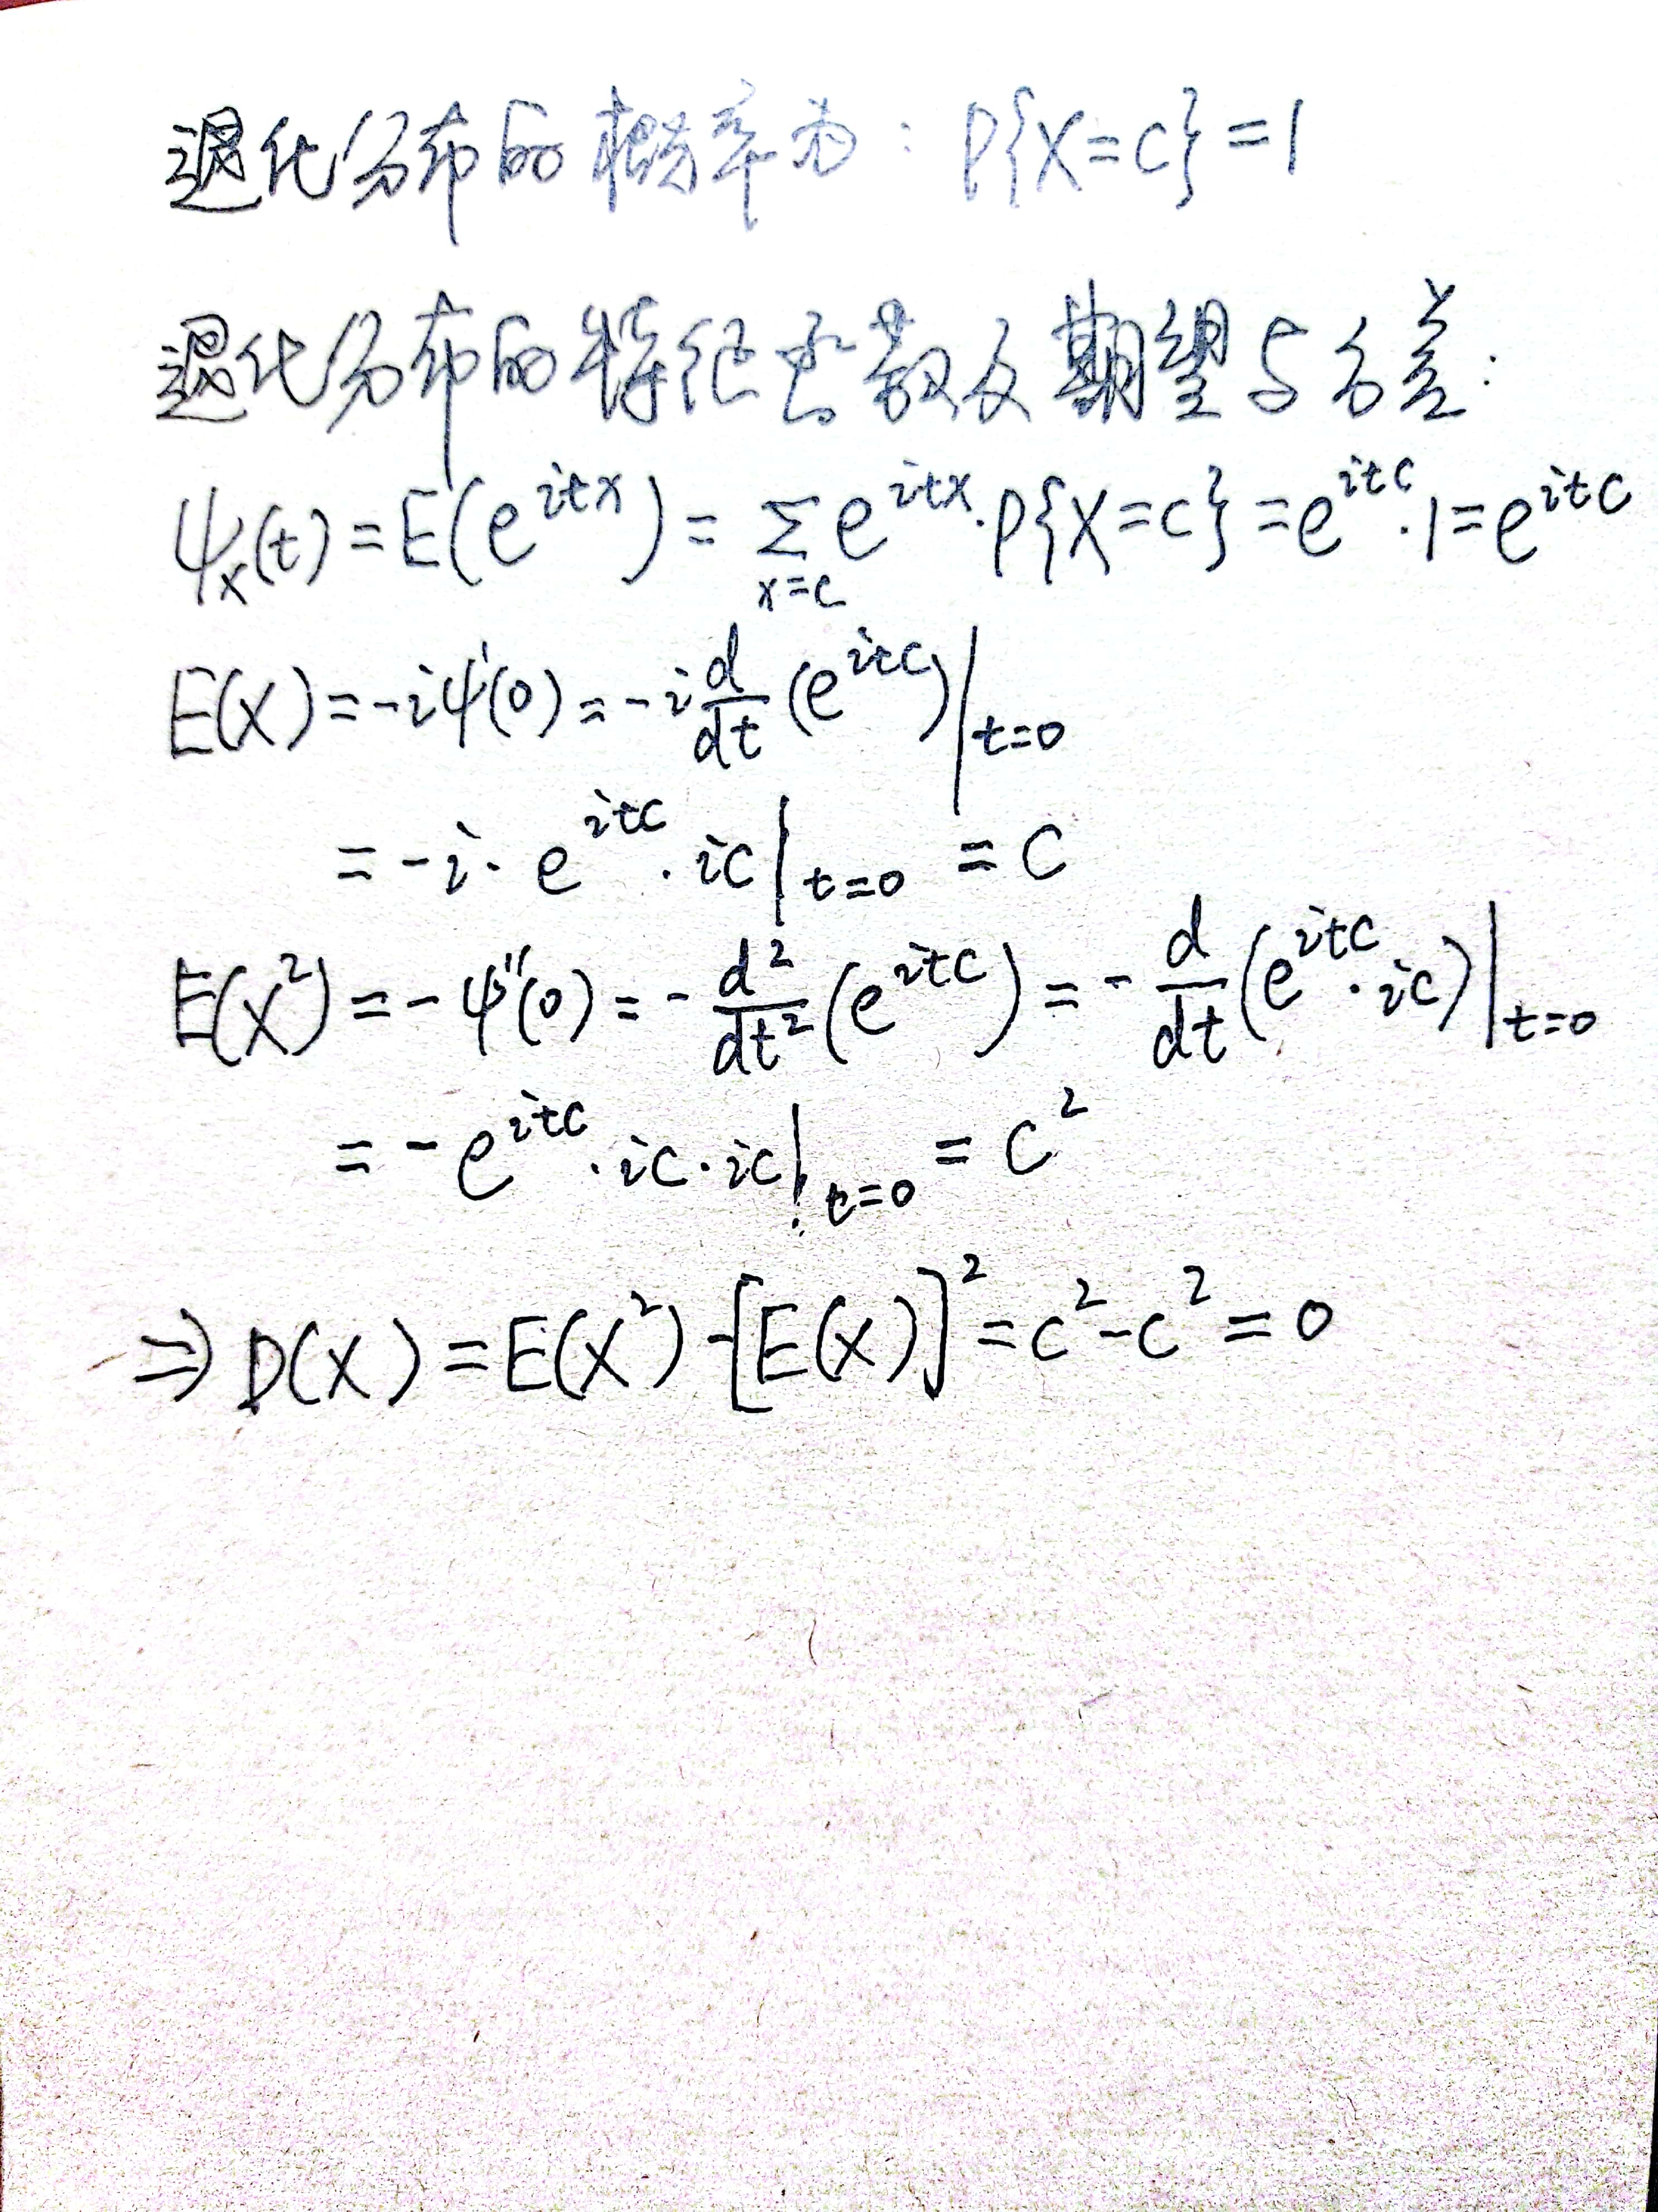 退化分布的概率为: P{X=c}=1
退化分布的特征函数及期望与方差:
ψₓ(t)=E(e^{itx})=∑_{x=c} e^{itx}·P{X=c}=e^{itc}·1=e^{itc}
E(X)=-iψ'(0)=-i d/dt (e^{itc})|_{t=0}
=-i·e^{itc}·ic|_{t=0}=c
E(X²)=-ψ''(0)=-d²/dt² (e^{itc})=-d/dt (e^{itc}·ic)|_{t=0}
=-e^{itc}·ic·ic|_{t=0}=c²
⇒D(X)=E(X²)-[E(X)]²=c²-c²=0